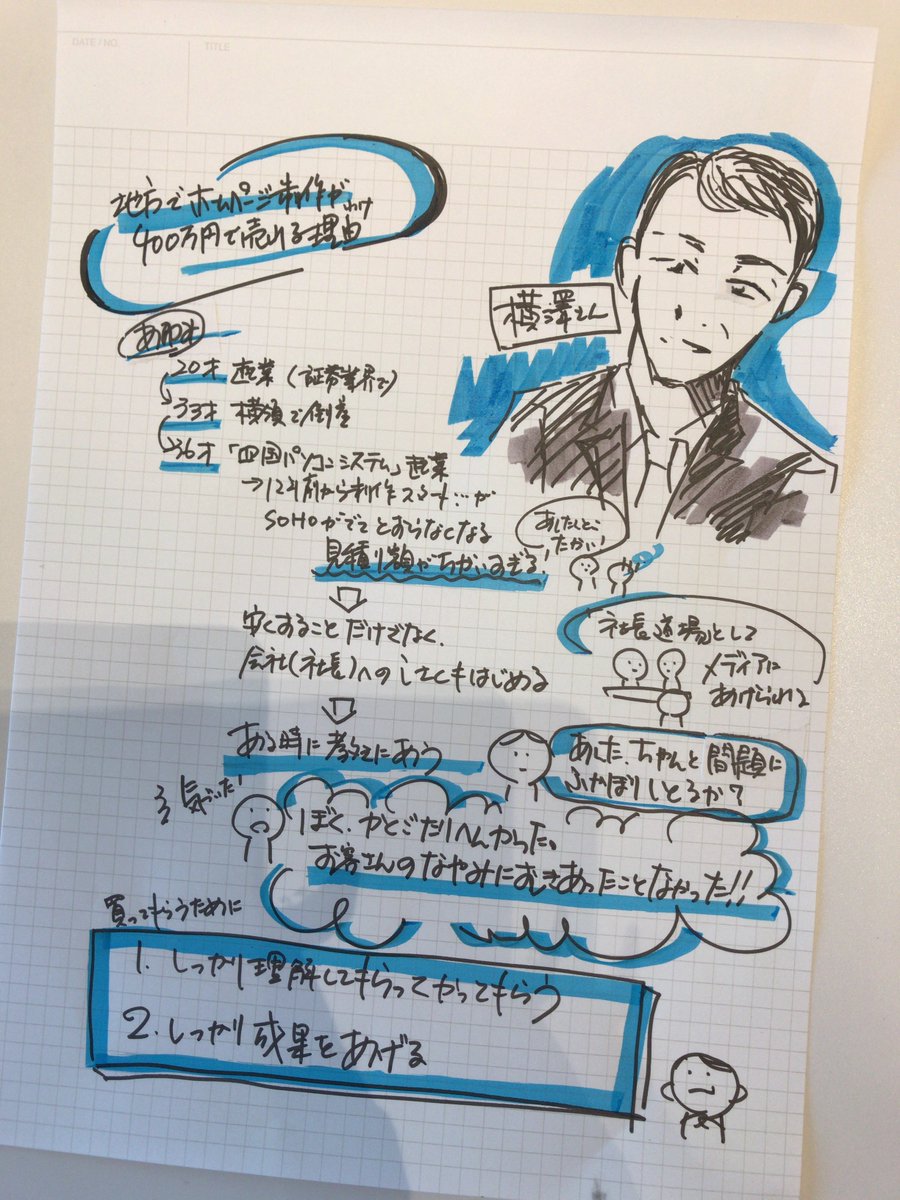 DATE / NO.
TITLE
地方でホームページ制作が
400万円で売れる理由
横澤さん
20才 起業（証券業界で）
33才 横須で倒産
36才 「四国パソコンシステム」起業
→12年前から制作スタート…が
SOHOがでてとおらなくなる
見積り額がちがいすぎる!
たかい!
安くすることだけでなく、
会社（社長）への もはじめる
「社長道場」として
メディアに
あげられる
ある時に教えにあう
ちゃんと問題に
ふかぼりしとるか?
気づいた!
ぼく、
お客さんのなやみにむきあったことなかった!!
買ってもらうために
1. しっかり理解してもらってやってもらう
2. しっかり成果をあげる